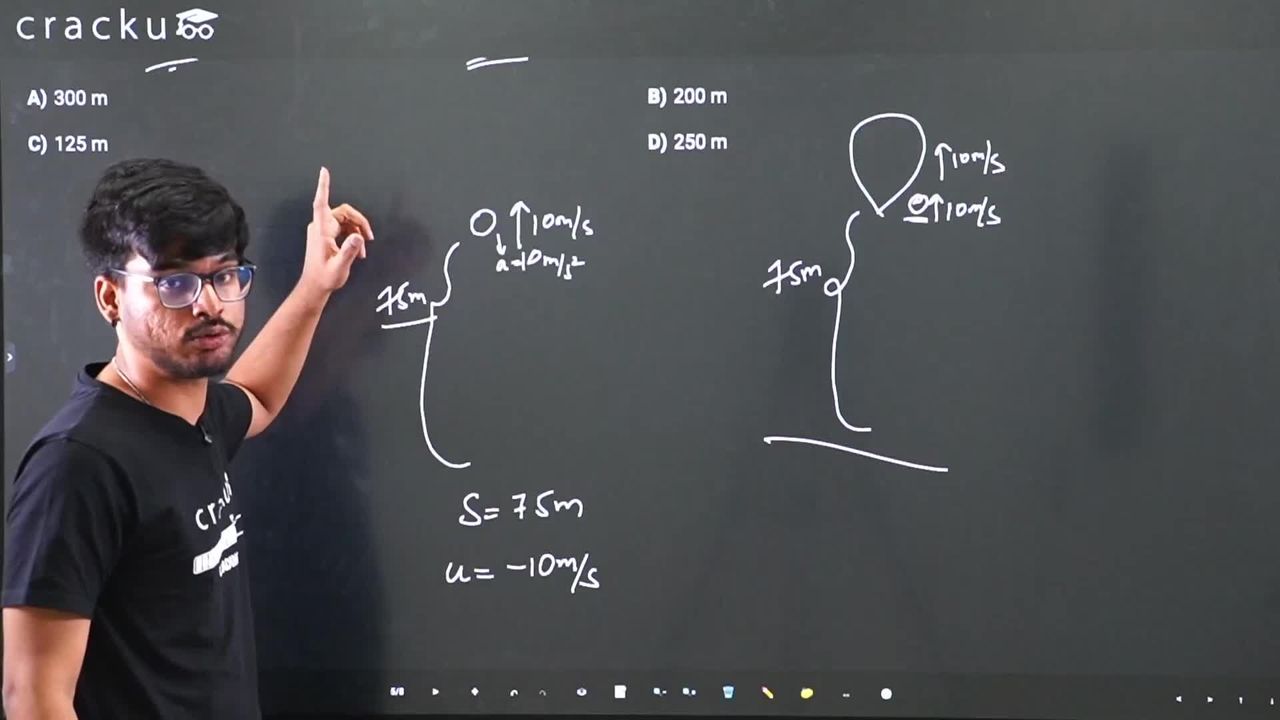 cracku
A) 300 m
B) 200 m
C) 125 m
D) 250 m
10m/s
a=10m/s²
75m
S= 75m
u= -10m/s
10m/s
10m/s
75m
6/8